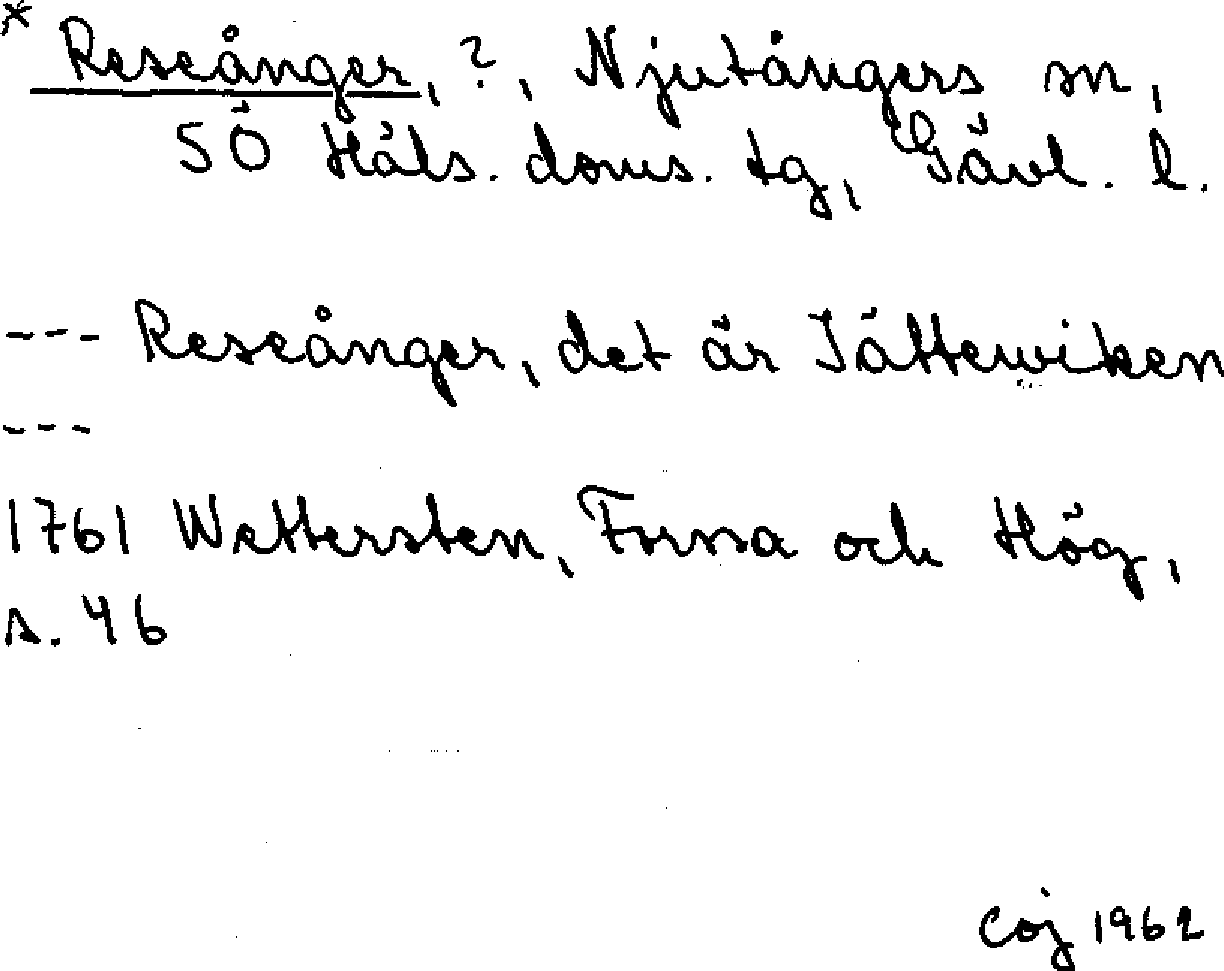 * Reseånger, ?, Njutångers sn,
SÖ Häls. doms. tg, Gävl. l.
--- Reseånger, det är Jättewiken
---
1761 Wettersten, Forssa och Hög,
s. 46
Coj 1962